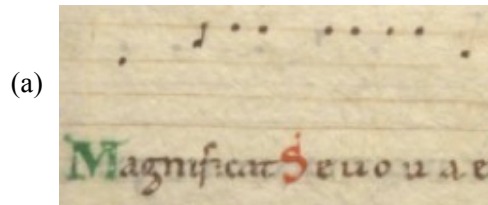 (a)
Magnificat Seuouae